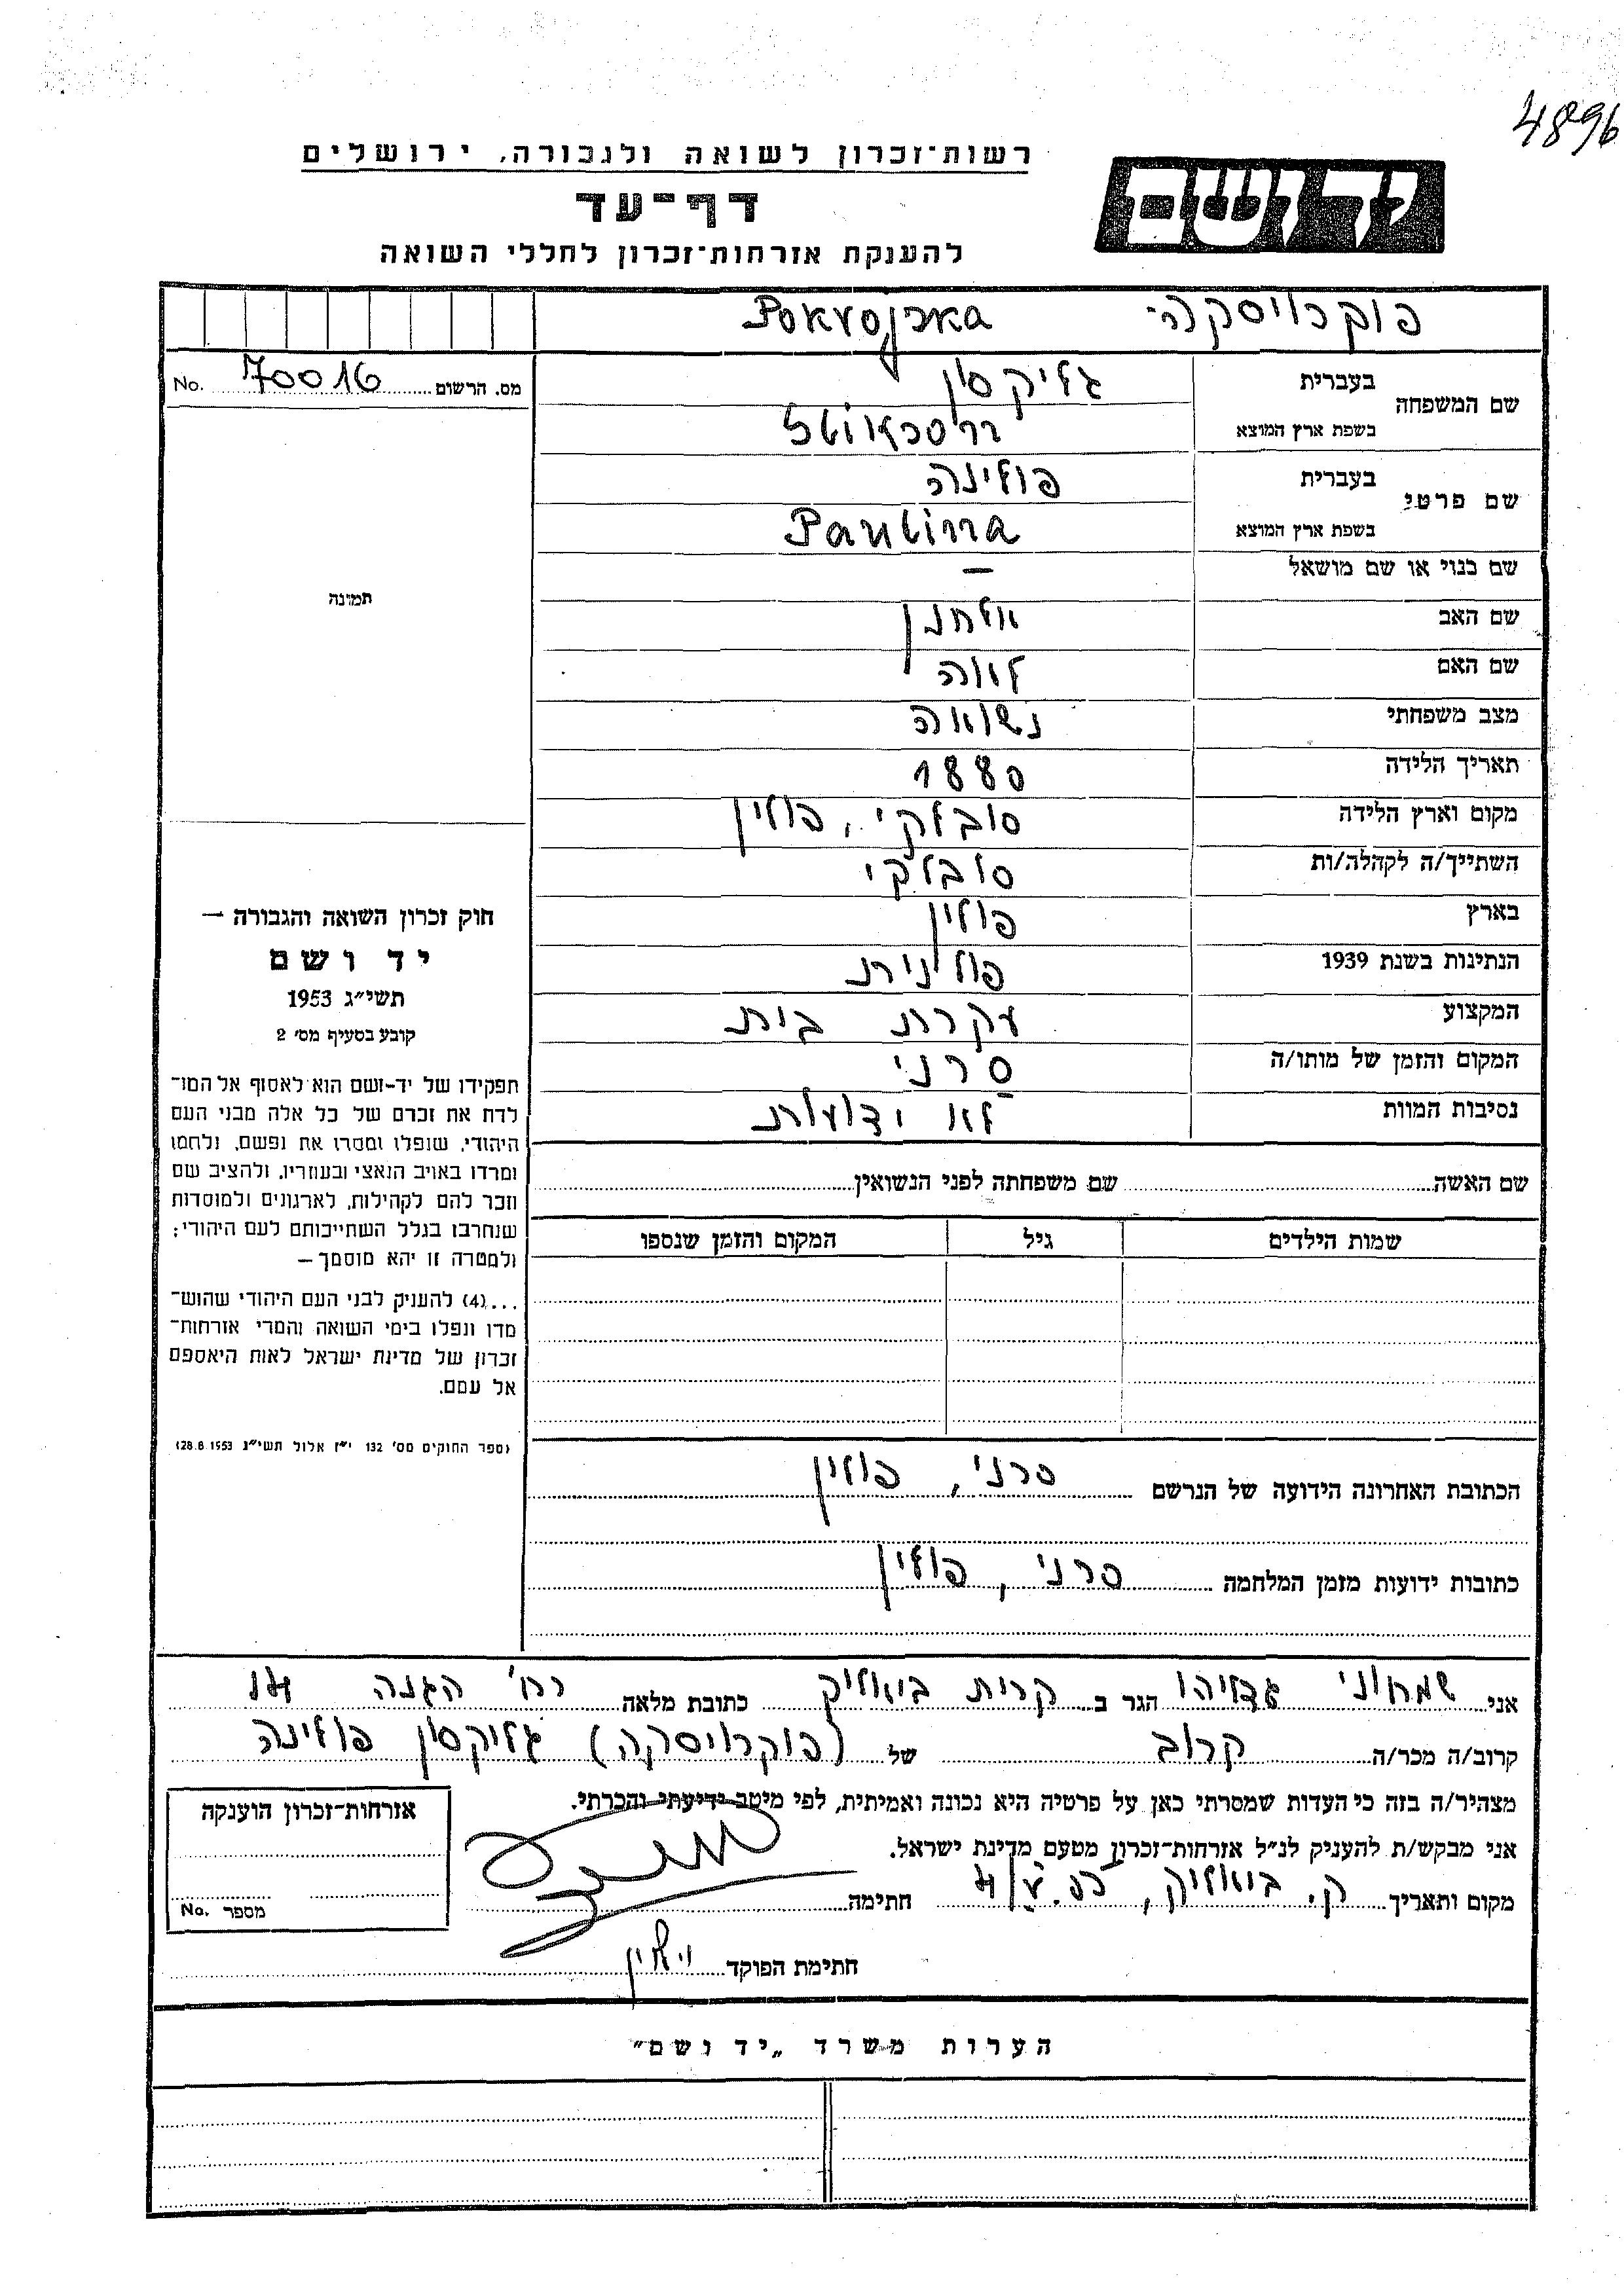 4896
רשות־זכרון לשואה ולגבורה, ירושלים
יד ושם
דף־עד
להענקת אזרחות־זכרון לחללי השואה
פוקרויסקה Pokrojska
מס. הרשום 70016 No.
שם המשפחה בעברית גליקסון
בשפת ארץ המוצא
שם פרטי בעברית פולינה
בשפת ארץ המוצא Paulina
שם כנוי או שם מושאל —
תמונה
שם האב אלחנן
שם האם לאה
מצב משפחתי נשואה
תאריך הלידה 1880
מקום וארץ הלידה סובלקי, פולין
השתייך/ה לקהלה/ות סובלקי
בארץ פולין
הנתינות בשנת 1939 פולנית
המקצוע עקרת בית
המקום והזמן של מותו/ה סרני
נסיבות המוות לא ידועות
חוק זכרון השואה והגבורה —
יד ושם
תשי״ג 1953
קובע בסעיף מס׳ 2
תפקידו של יד-ושם הוא לאסוף אל המו־
לדת את זכרם של כל אלה מבני העם
היהודי, שנפלו ומסרו את נפשם, נלחמו
ומרדו באויב הנאצי ובעוזריו, ולהציב שם
וזכר להם לקהילות, לארגונים ולמוסדות
שנחרבו בגלל השתייכותם לעם היהודי;
ולמטרה זו יהא מוסמך —
...(4) להעניק לבני העם היהודי שהוש־
מדו ונפלו בימי השואה והמרי אזרחות־
זכרון של מדינת ישראל לאות היאספם
אל עמם.
(ספר החוקים מס׳ 132 י״ז אלול תשי״ג 28.8.1953)
שם האשה שם משפחתה לפני הנשואין
שמות הילדים גיל המקום והזמן שנספו
הכתובת האחרונה הידועה של הנרשם סרני, פולין
כתובות ידועות מזמן המלחמה סרני, פולין
אני שמחוני גדליהו הגר ב קרית ביאליק כתובת מלאה רח׳ הגנה 14
קרוב/ה מכר/ה קרוב של (פוקרויסקה) גליקסון פולינה
מצהיר/ה בזה כי העדות שמסרתי כאן על פרטיה היא נכונה ואמיתית, לפי מיטב ידיעתי והכרתי.
אני מבקש/ת להעניק לנ״ל אזרחות־זכרון מטעם מדינת ישראל.
מקום ותאריך ק. ביאליק, חתימה
חתימת הפוקד
אזרחות־זכרון הוענקה
מספר No.
הערות משרד „יד ושם״